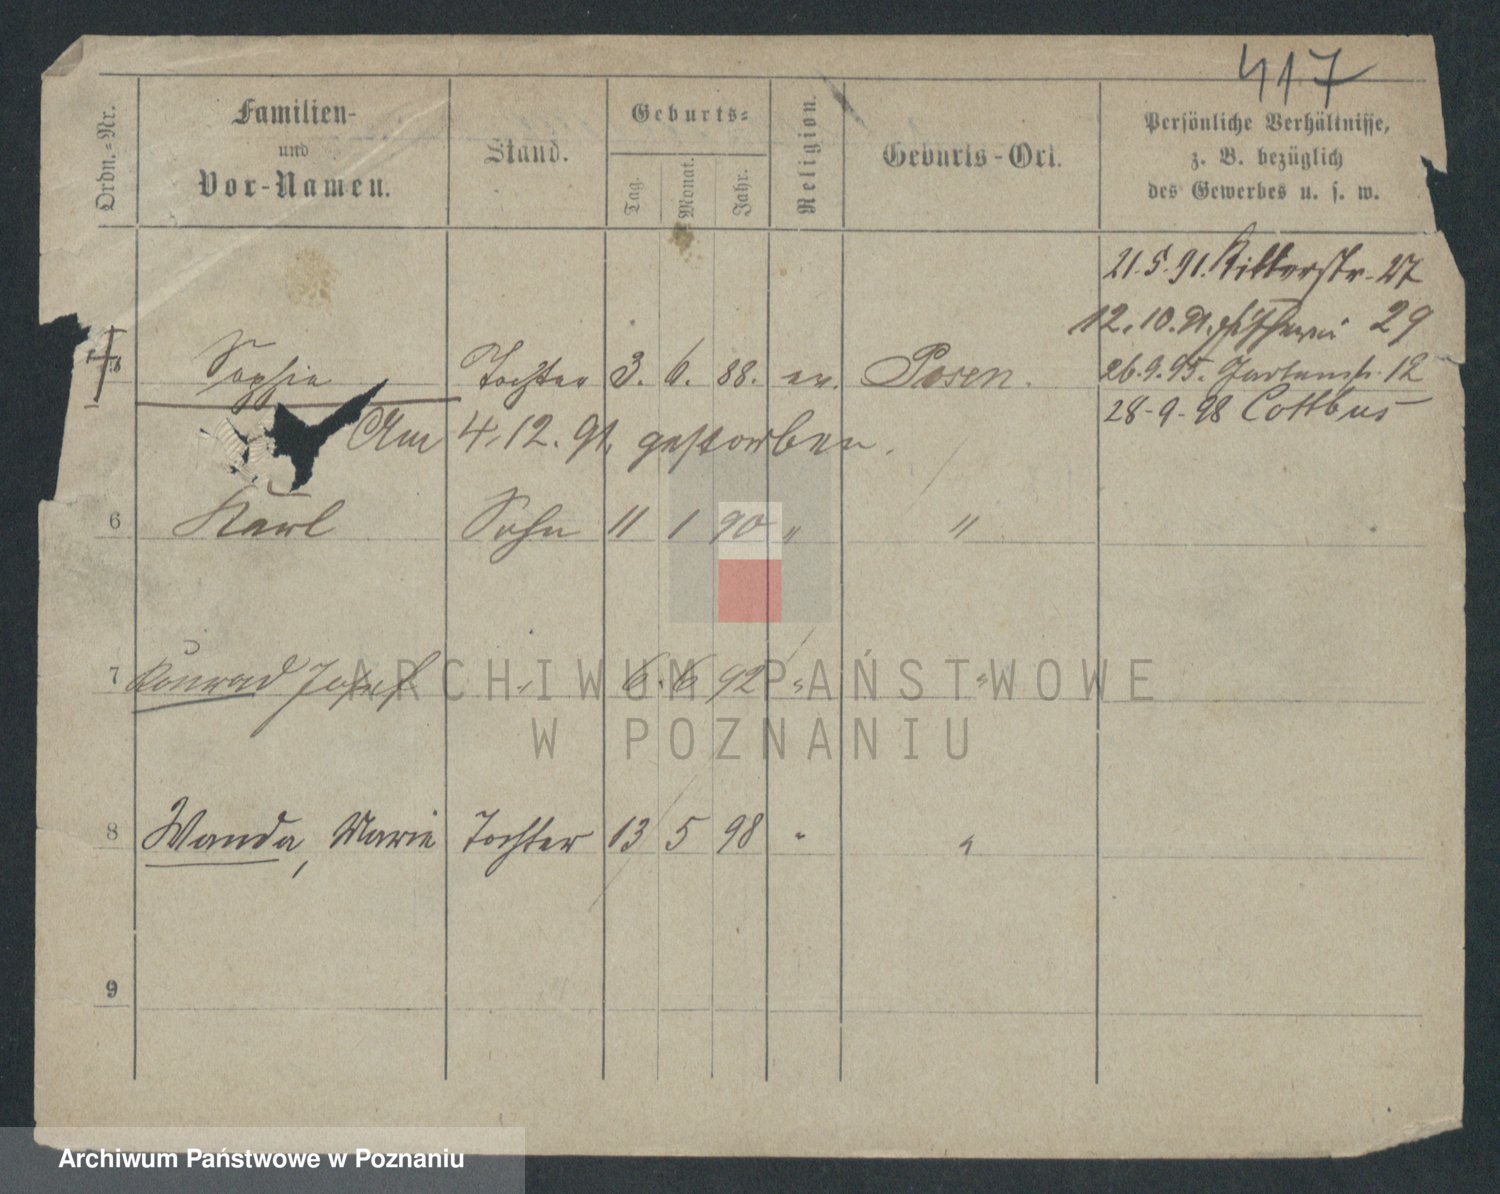 417
Ordn.-Nr.
Familien-
und
Vor-Namen.
Stand.
Geburts-
Tag.
Monat.
Jahr.
Religion.
Geburts-Ort.
Persönliche Verhältnisse,
z. B. bezüglich
des Gewerbes u. s. w.
21.5.91. Ritterstr. 27
12.10.91. Fischerei 29
26.9.95. 12
28-9-98 Cottbus
5 Sophie Tochter 3. 6. 88. ev. Posen.
Am 4.12.91. gestorben.
6 Karl Sohn 11 1 90 " "
7 Konrad Josef " 6. 6 92 " "
8 Wanda, Marie Tochter 13 5 98 " "
9
ARCHIWUM PAŃSTWOWE
W POZNANIU
Archiwum Państwowe w Poznaniu